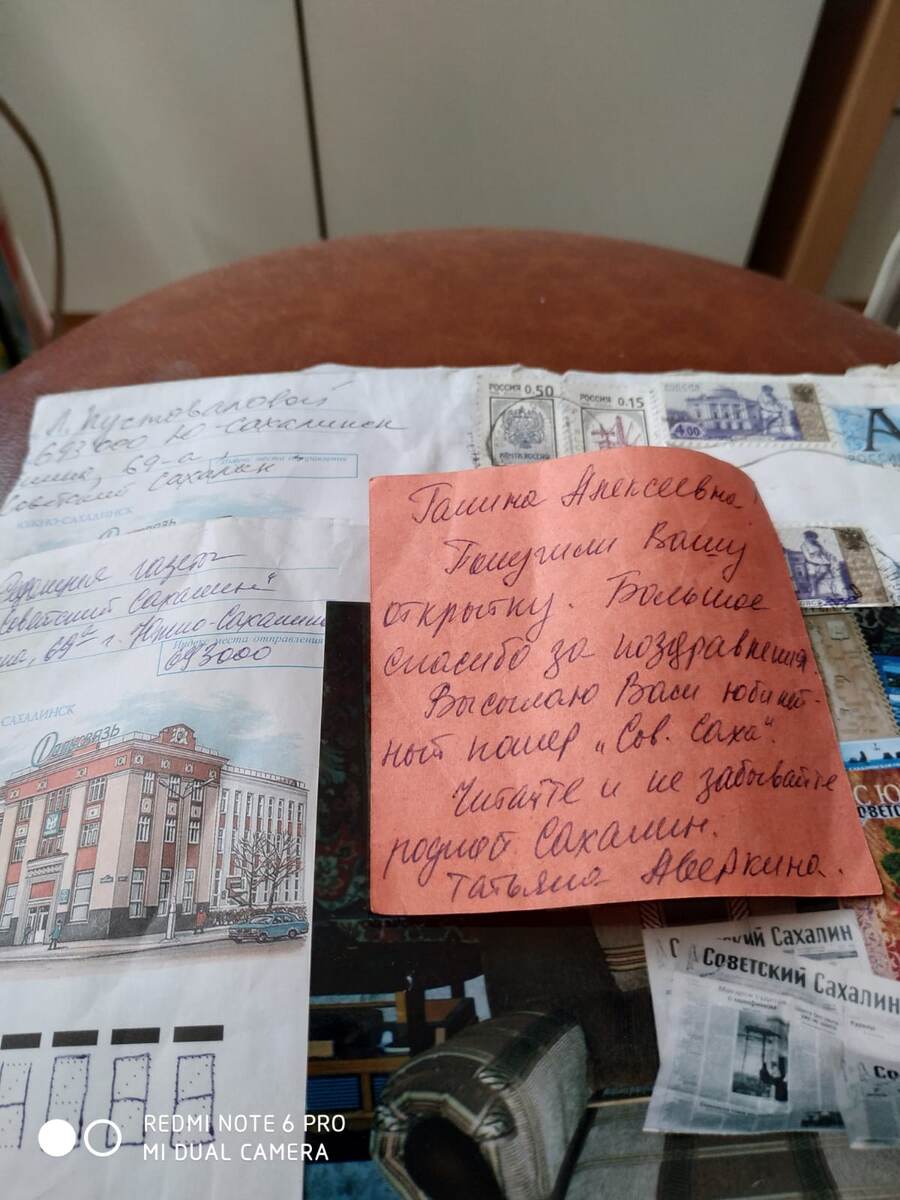 Л. Пустоваловой
693000 Ю-Сахалинск
69-а
Советский Сахалин
Индекс места отправления
ЮЖНО-САХАЛИНСК
РОССИЯ 0.50
ПОЧТА РОССИИ
РОССИЯ 0.15
4.00
А
газеты
Советский Сахалин"
69а г. Южно-Сахалинск
Индекс места отправления
693000
САХАЛИНСК
Дальсвязь
Галина Алексеевна!
Получили Вашу
открытку. Большое
спасибо за поздравления
Высылаю Вам юбилей-
ный номер „Сов. Саха".
Читайте и не забывайте
родной Сахалин.
Татьяна Аверкина.
С Ю
ОВЕТСК
ский Сахалин
Советский Сахалин
Со
REDMI NOTE 6 PRO
MI DUAL CAMERA